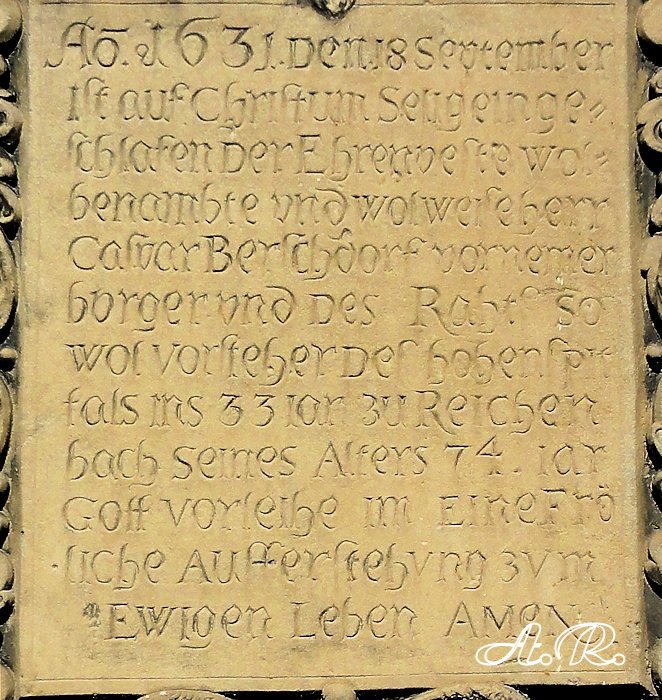 Aō. 1631. Den 18 September
Ist auf Christum Selig einge=
schlafen Der Ehrenveste wol=
benambte vnd wolweise herr
Caspar Berschdorf vornemer
burger vnd Des Rahts so
wol vorsteher Des hohenspit
tals ins 33 iar zu Reichen
bach seines Alters 74. iar
Gott vorleihe im EineFrö
liche Aufferstehvng zvm
Ewigen Leben Amen
At. R.